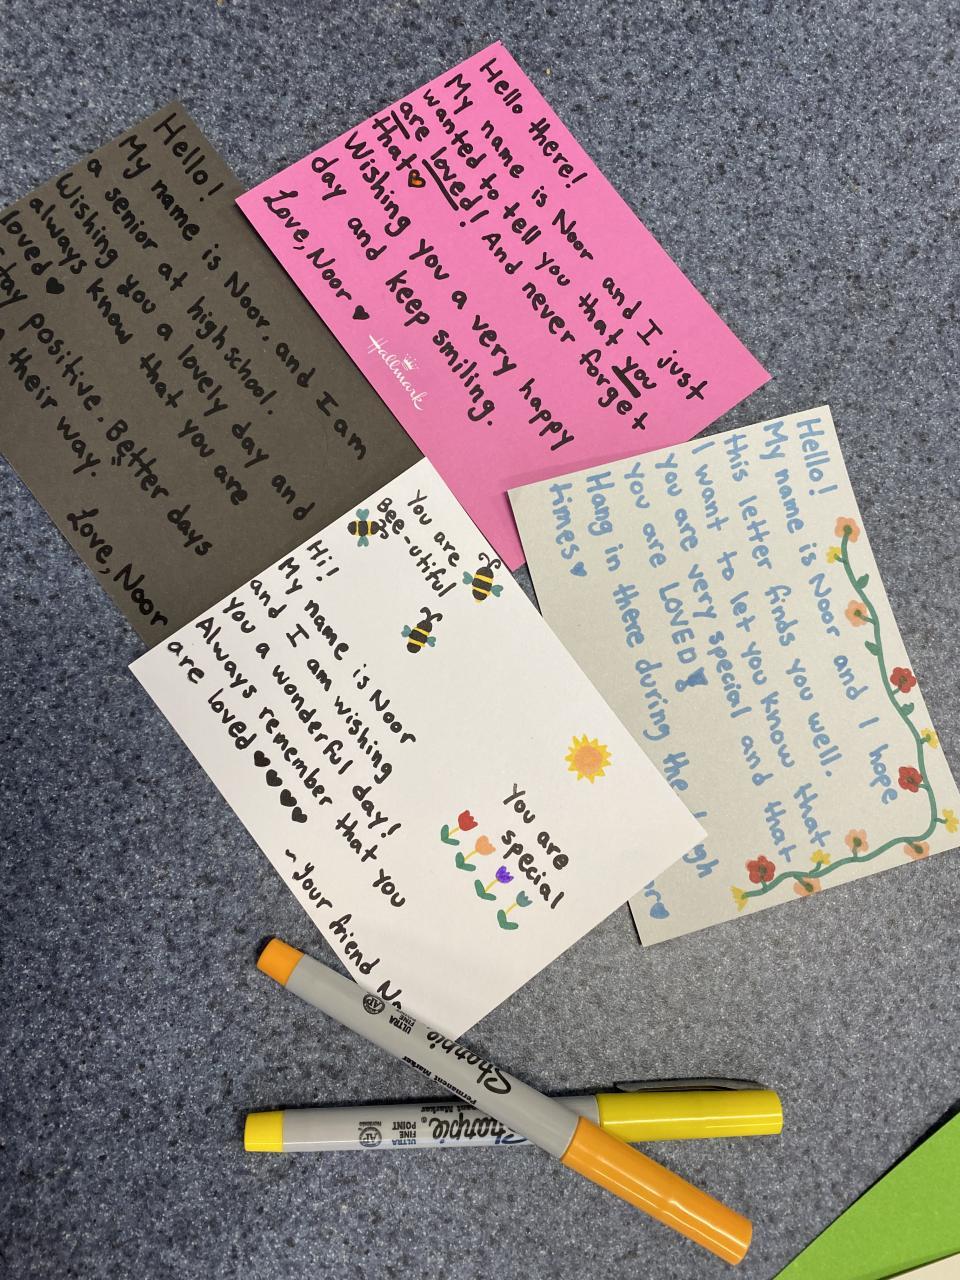 Hello!
My name is Noor. and I am
a senior at highschool.
Wishing you a lovely day and
always know that you are
loved ♥
tay positive. Better days
their way.
Love, Noor
Hello there!
My name is Noor and I just
wanted to tell you that you
are loved! And never forget
that ♥
Wishing you a very happy
day and keep smiling.
Love, Noor ♥
Hallmark
Hello!
My name is Noor and I hope
this letter finds you well.
I want to let you know that
you are very special and that
you are LOVED!
Hang in there during the
times ♥
You are
Bee-utiful
Hi!
My name is Noor
and I am wishing
you a wonderful day!
Always remember that you
are loved ♥♥♥♥♥
~ your friend
You are
special
Sharpie
Permanent Marker
ULTRA
FINE
AP
Sharpie
ULTRA
FINE
POINT
AP